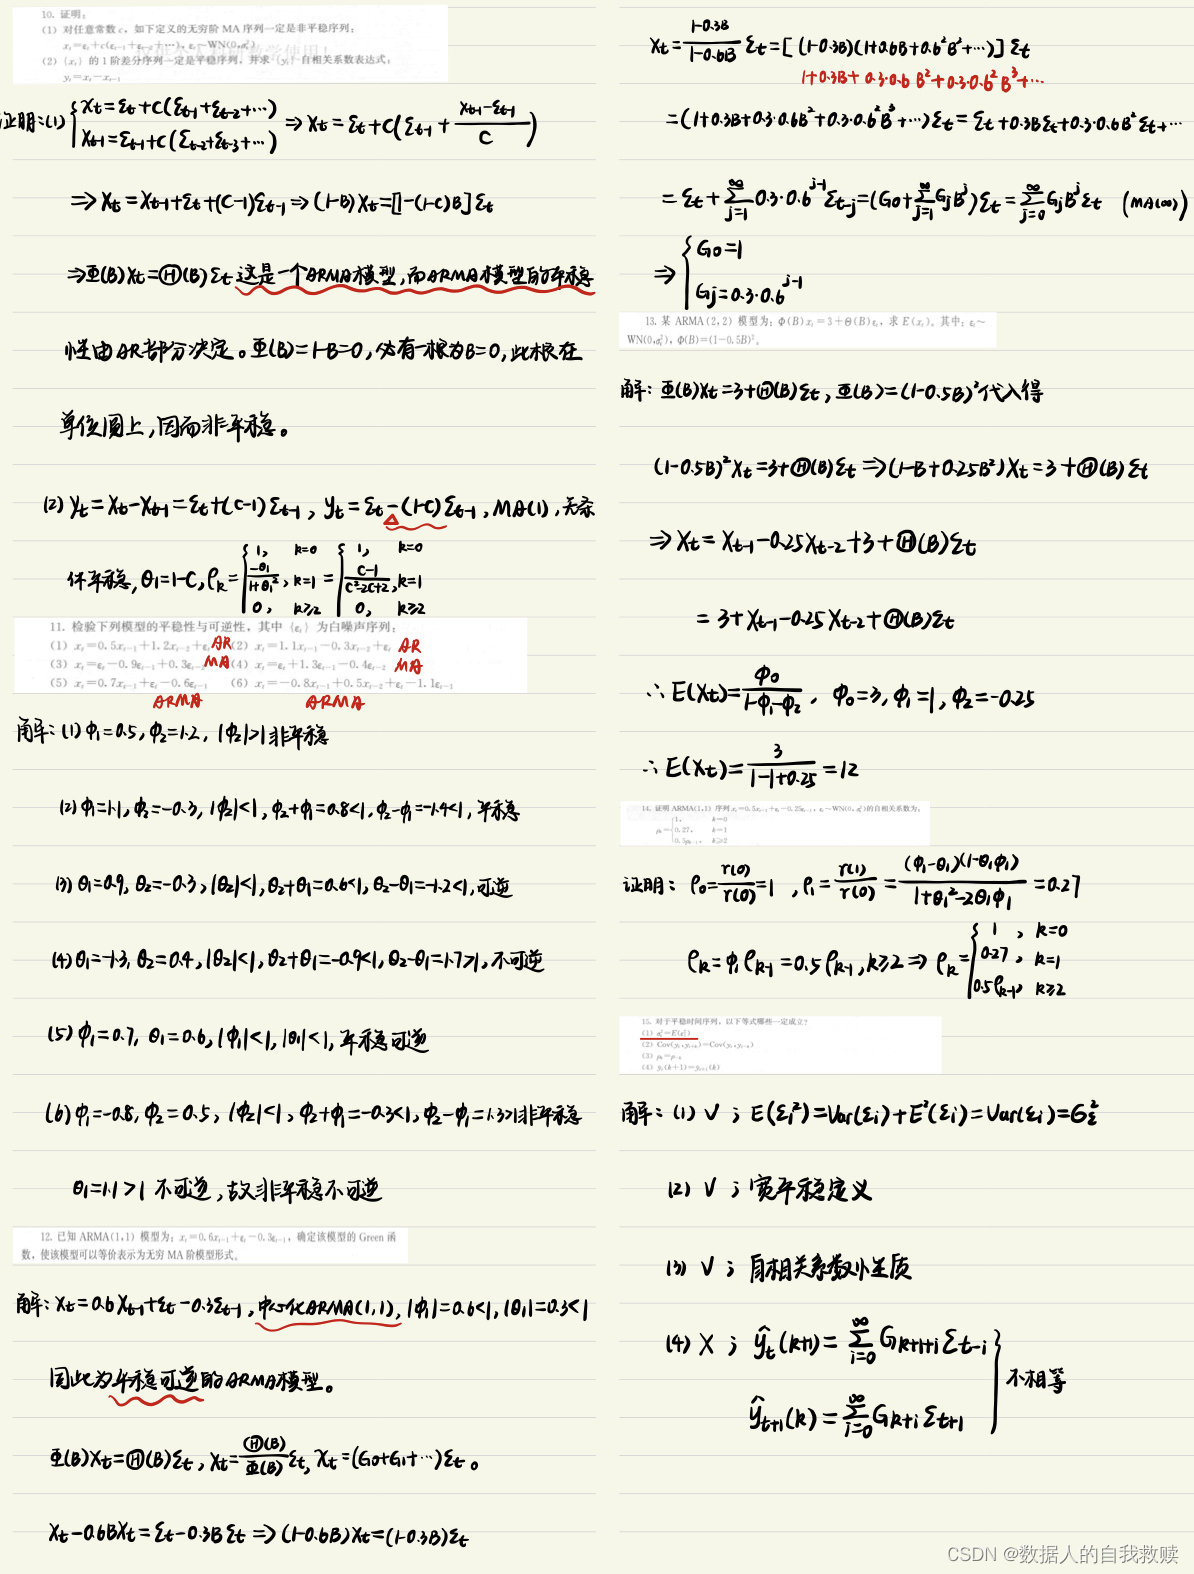 10. 证明:
(1) 对任意常数 c, 如下定义的无穷阶 MA 序列一定是非平稳序列:
x_t=ε_t+c(ε_{t-1}+ε_{t-2}+⋯), ε_t~WN(0,σ_ε²)
(2) {x_t} 的 1 阶差分序列一定是平稳序列, 并求 {y_t} 自相关系数表达式:
y_t=x_t-x_{t-1}
证明:(1) { x_t=ε_t+c(ε_{t-1}+ε_{t-2}+⋯)
x_{t-1}=ε_{t-1}+c(ε_{t-2}+ε_{t-3}+⋯) ⇒ x_t=ε_t+c(ε_{t-1}+ (x_{t-1}-ε_{t-1})/c )
⇒ x_t=x_{t-1}+ε_t+(c-1)ε_{t-1} ⇒ (1-B)x_t=[1-(1-c)B]ε_t
⇒Φ(B)x_t=Θ(B)ε_t 这是一个ARMA模型,而ARMA模型的平稳
性由AR部分决定。Φ(B)=1-B=0,必有一根为B=0,此根在
单位圆上,因而非平稳。
(2) y_t=x_t-x_{t-1}=ε_t+(c-1)ε_{t-1}, y_t=ε_t-(1-c)ε_{t-1}, MA(1),无条
件平稳, θ_1=1-c, ρ_k={ 1, k=0; -θ_1/(1+θ_1²), k=1; 0, k≥2 = { 1, k=0; (c-1)/(c²-2c+2), k=1; 0, k≥2
11. 检验下列模型的平稳性与可逆性, 其中 {ε_t} 为白噪声序列:
(1) x_t=0.5x_{t-1}+1.2x_{t-2}+ε_t AR (2) x_t=1.1x_{t-1}-0.3x_{t-2}+ε_t AR
(3) x_t=ε_t-0.9ε_{t-1}+0.3ε_{t-2} MA (4) x_t=ε_t+1.3ε_{t-1}-0.4ε_{t-2} MA
(5) x_t=0.7x_{t-1}+ε_t-0.6ε_{t-1} (6) x_t=-0.8x_{t-1}+0.5x_{t-2}+ε_t-1.1ε_{t-1}
ARMA ARMA
解:(1) φ_1=0.5, φ_2=1.2, |φ_2|>1非平稳
(2) φ_1=1.1, φ_2=-0.3, |φ_2|<1, φ_2+φ_1=0.8<1, φ_2-φ_1=-1.4<1, 平稳
(3) θ_1=0.9, θ_2=-0.3, |θ_2|<1, θ_2+θ_1=0.6<1, θ_2-θ_1=-1.2<1, 可逆
(4) θ_1=-1.3, θ_2=0.4, |θ_2|<1, θ_2+θ_1=-0.9<1, θ_2-θ_1=1.7>1, 不可逆
(5) φ_1=0.7, θ_1=0.6, |φ_1|<1, |θ_1|<1, 平稳可逆
(6) φ_1=-0.8, φ_2=0.5, |φ_2|<1, φ_2+φ_1=-0.3<1, φ_2-φ_1=1.3>1非平稳
θ_1=1.1>1 不可逆, 故非平稳不可逆
12. 已知 ARMA(1,1) 模型为: x_t=0.6x_{t-1}+ε_t-0.3ε_{t-1}, 确定该模型的 Green 函
数, 使该模型可以等价表示为无穷 MA 阶模型形式。
解: x_t=0.6x_{t-1}+ε_t-0.3ε_{t-1}, 中心化ARMA(1,1), |φ_1|=0.6<1, |θ_1|=0.3<1
因此为平稳可逆的ARMA模型。
Φ(B)x_t=Θ(B)ε_t, x_t=Θ(B)/Φ(B) ε_t, x_t=(G_0+G_1+⋯)ε_t。
x_t-0.6Bx_t=ε_t-0.3Bε_t ⇒ (1-0.6B)x_t=(1-0.3B)ε_t
x_t=(1-0.3B)/(1-0.6B) ε_t=[(1-0.3B)(1+0.6B+0.6²B²+⋯)]ε_t
1+0.3B+0.3·0.6B²+0.3·0.6²B³+⋯
=(1+0.3B+0.3·0.6B²+0.3·0.6²B³+⋯)ε_t=ε_t+0.3Bε_t+0.3·0.6B²ε_t+⋯
=ε_t+∑_{j=1}^{∞}0.3·0.6^{j-1}ε_{t-j}=(G_0+∑_{j=1}^{∞}G_jB^j)ε_t=∑_{j=0}^{∞}G_jB^jε_t (MA(∞))
⇒ { G_0=1
G_j=0.3·0.6^{j-1}
13. 某 ARMA(2,2) 模型为: Φ(B)x_t=3+Θ(B)ε_t, 求 E(x_t)。其中: ε_t~
WN(0,σ_ε²), Φ(B)=(1-0.5B)²。
解: Φ(B)x_t=3+Θ(B)ε_t, Φ(B)=(1-0.5B)²代入得
(1-0.5B)²x_t=3+Θ(B)ε_t ⇒(1-B+0.25B²)x_t=3+Θ(B)ε_t
⇒ x_t=x_{t-1}-0.25x_{t-2}+3+Θ(B)ε_t
=3+x_{t-1}-0.25x_{t-2}+Θ(B)ε_t
∴E(x_t)=φ_0/(1-φ_1-φ_2), φ_0=3, φ_1=1, φ_2=-0.25
∴E(x_t)=3/(1-1+0.25)=12
14. 证明 ARMA(1,1) 序列 x_t=0.5x_{t-1}+ε_t-0.25ε_{t-1}, ε_t~WN(0,σ_ε²)的自相关系数为:
ρ_k={ 1, k=0
0.27, k=1
0.5ρ_{k-1}, k≥2
证明: ρ_0=r(0)/r(0)=1, ρ_1=r(1)/r(0)=(φ_1-θ_1)(1-θ_1φ_1)/(1+θ_1²-2θ_1φ_1)=0.27
ρ_k=φ_1ρ_{k-1}=0.5ρ_{k-1}, k≥2 ⇒ ρ_k={ 1, k=0; 0.27, k=1; 0.5ρ_{k-1}, k≥2
15. 对于平稳时间序列, 以下等式哪些一定成立?
(1) σ_ε²=E(ε_t²)
(2) Cov(y_t,y_{t+k})=Cov(y_t,y_{t-k})
(3) ρ_k=ρ_{-k}
(4) ŷ_t(k+1)=ŷ_{t+1}(k)
解:(1) √; E(ε_i²)=Var(ε_i)+E²(ε_i)=Var(ε_i)=σ_ε²
(2) √; 宽平稳定义
(3) √; 自相关系数性质
(4) X; ŷ_t(k+1)=∑_{i=0}^{∞}G_{k+1+i}ε_{t-i}
ŷ_{t+1}(k)=∑_{i=0}^{∞}G_{k+i}ε_{t+1} } 不相等
CSDN @数据人的自我救赎